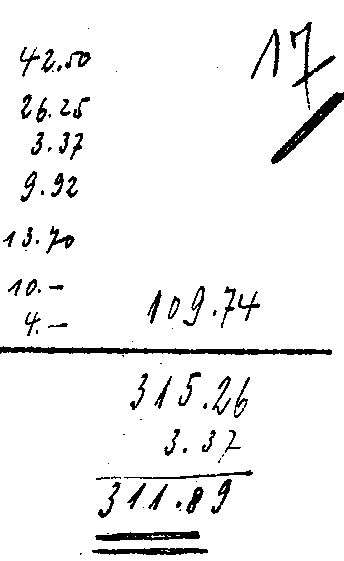 17
42.50
26.25
3.37
9.92
13.70
10.-
4.- 109.74
315.26
3.37
311.89